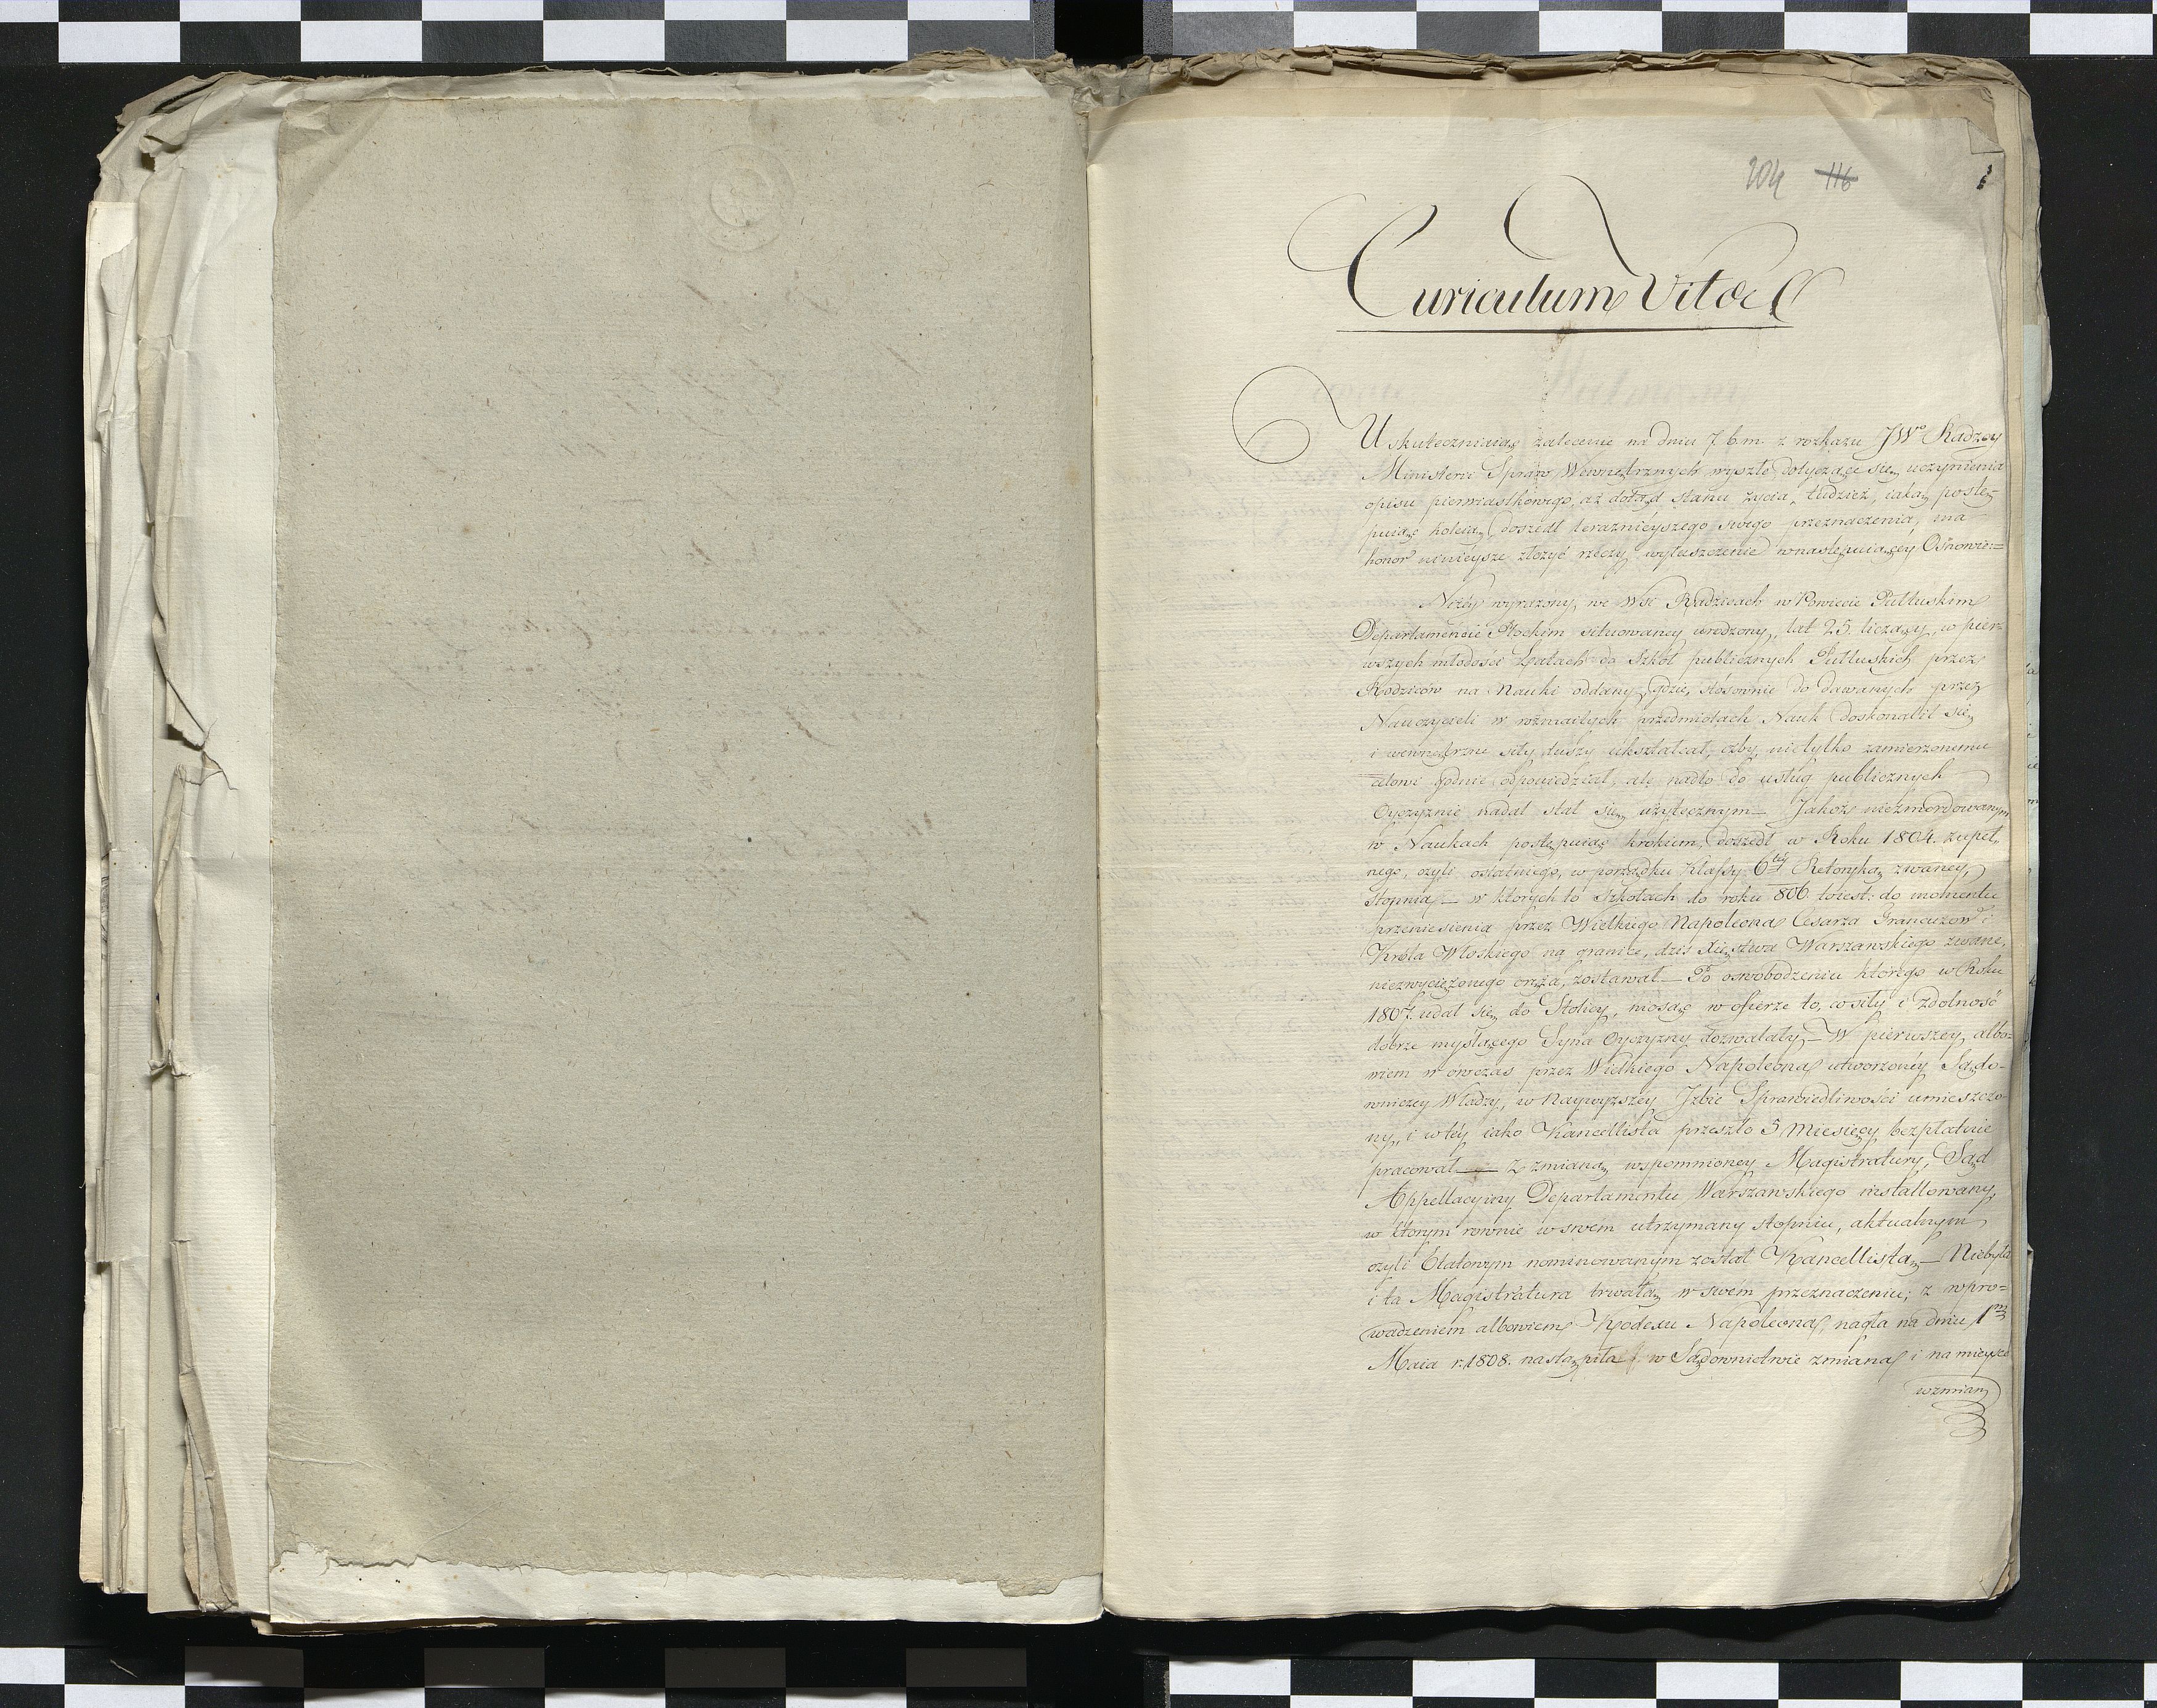 204 116
Curiculum Vitae
Uskuteczniaiąc zalecenie na dniu 7. b. m. z rozkazu JWo Radzcy
Ministerii Spraw Wewnętrznych wyszłe, dotyczące się uczynienia
opisu pierwiastkowego, aż dotąd stanu życia, tudzież, iaką postę-
puiąc koleią, doszedł teraznieyszego swego przeznaczenia, ma
honor ninieysze złożyć rzeczy wyłuszczenie w następuiącey Osnowie:=
Niżéy wyrażony, we Wsi Radzicach w Powiecie Pułtuskim
Departamencie Płockim situowaney urodzony, lat 25. liczący, w pier-
wszych młodości Latach do Szkół publicznych Pułtuskich przez
Rodziców na Nauki oddany, gdzie, stósownie do dawanych przez
Nauczycieli w rozmaitych przedmiotach Nauk doskonalił się
i wewnętrzne siły duszy ukształcał, aby nietylko zamierzonemu
celowi godnie odpowiedział, ale nadto do usług publicznych
Oyczyznie nadal stał się użytecznym — Jakoż niezmordowanym
w Naukach postępuiąc krokiem, doszedł w Roku 1804. zupeł-
nego, czyli ostatniego, w porządku Klassy 6téy Retoryką zwaney,
stopnia — w których to Szkołach do roku 806 toiest: do momentu
przeniesienia przez Wielkiego Napoleona Cesarza Francuzow i
Króla Włoskiego na granice, dziś Xięstwa Warszawskiego zwane,
niezwyciężonego oręża, zostawał — Po oswobodzeniu którego w Roku
1807. udał się do Stolicy, niosąc w ofierze to, co siły i zdolność
dobrze myślącego Syna Oyczyzny dozwalały — W pierwszey albo-
wiem w ówczas przez Wielkiego Napoleona utworzonéy Sądo-
wniczey Władzy, w Naywyższey Izbie Sprawiedliwości umieszczo-
ny, i w téy iako Kancellista przeszło 5 Miesięcy bezpłatnie
pracował — Z zmianą wspomnioney Magistratury, Sąd
Appellacyiny Departamentu Warszawskiego installowany,
w którym rownie w swem utrzymany stopniu, aktualnym
czyli Etatowym nominowanym został Kancellistą — Niebyła
i ta Magistratura trwałą w swém przeznaczeniu; z wpro-
wadzeniem albowiem Kodexu Napoleona, nagła na dniu 1m
Maia r. 1808. nastąpiła w Sądownictwie zmiana i na mieysce
wzmian